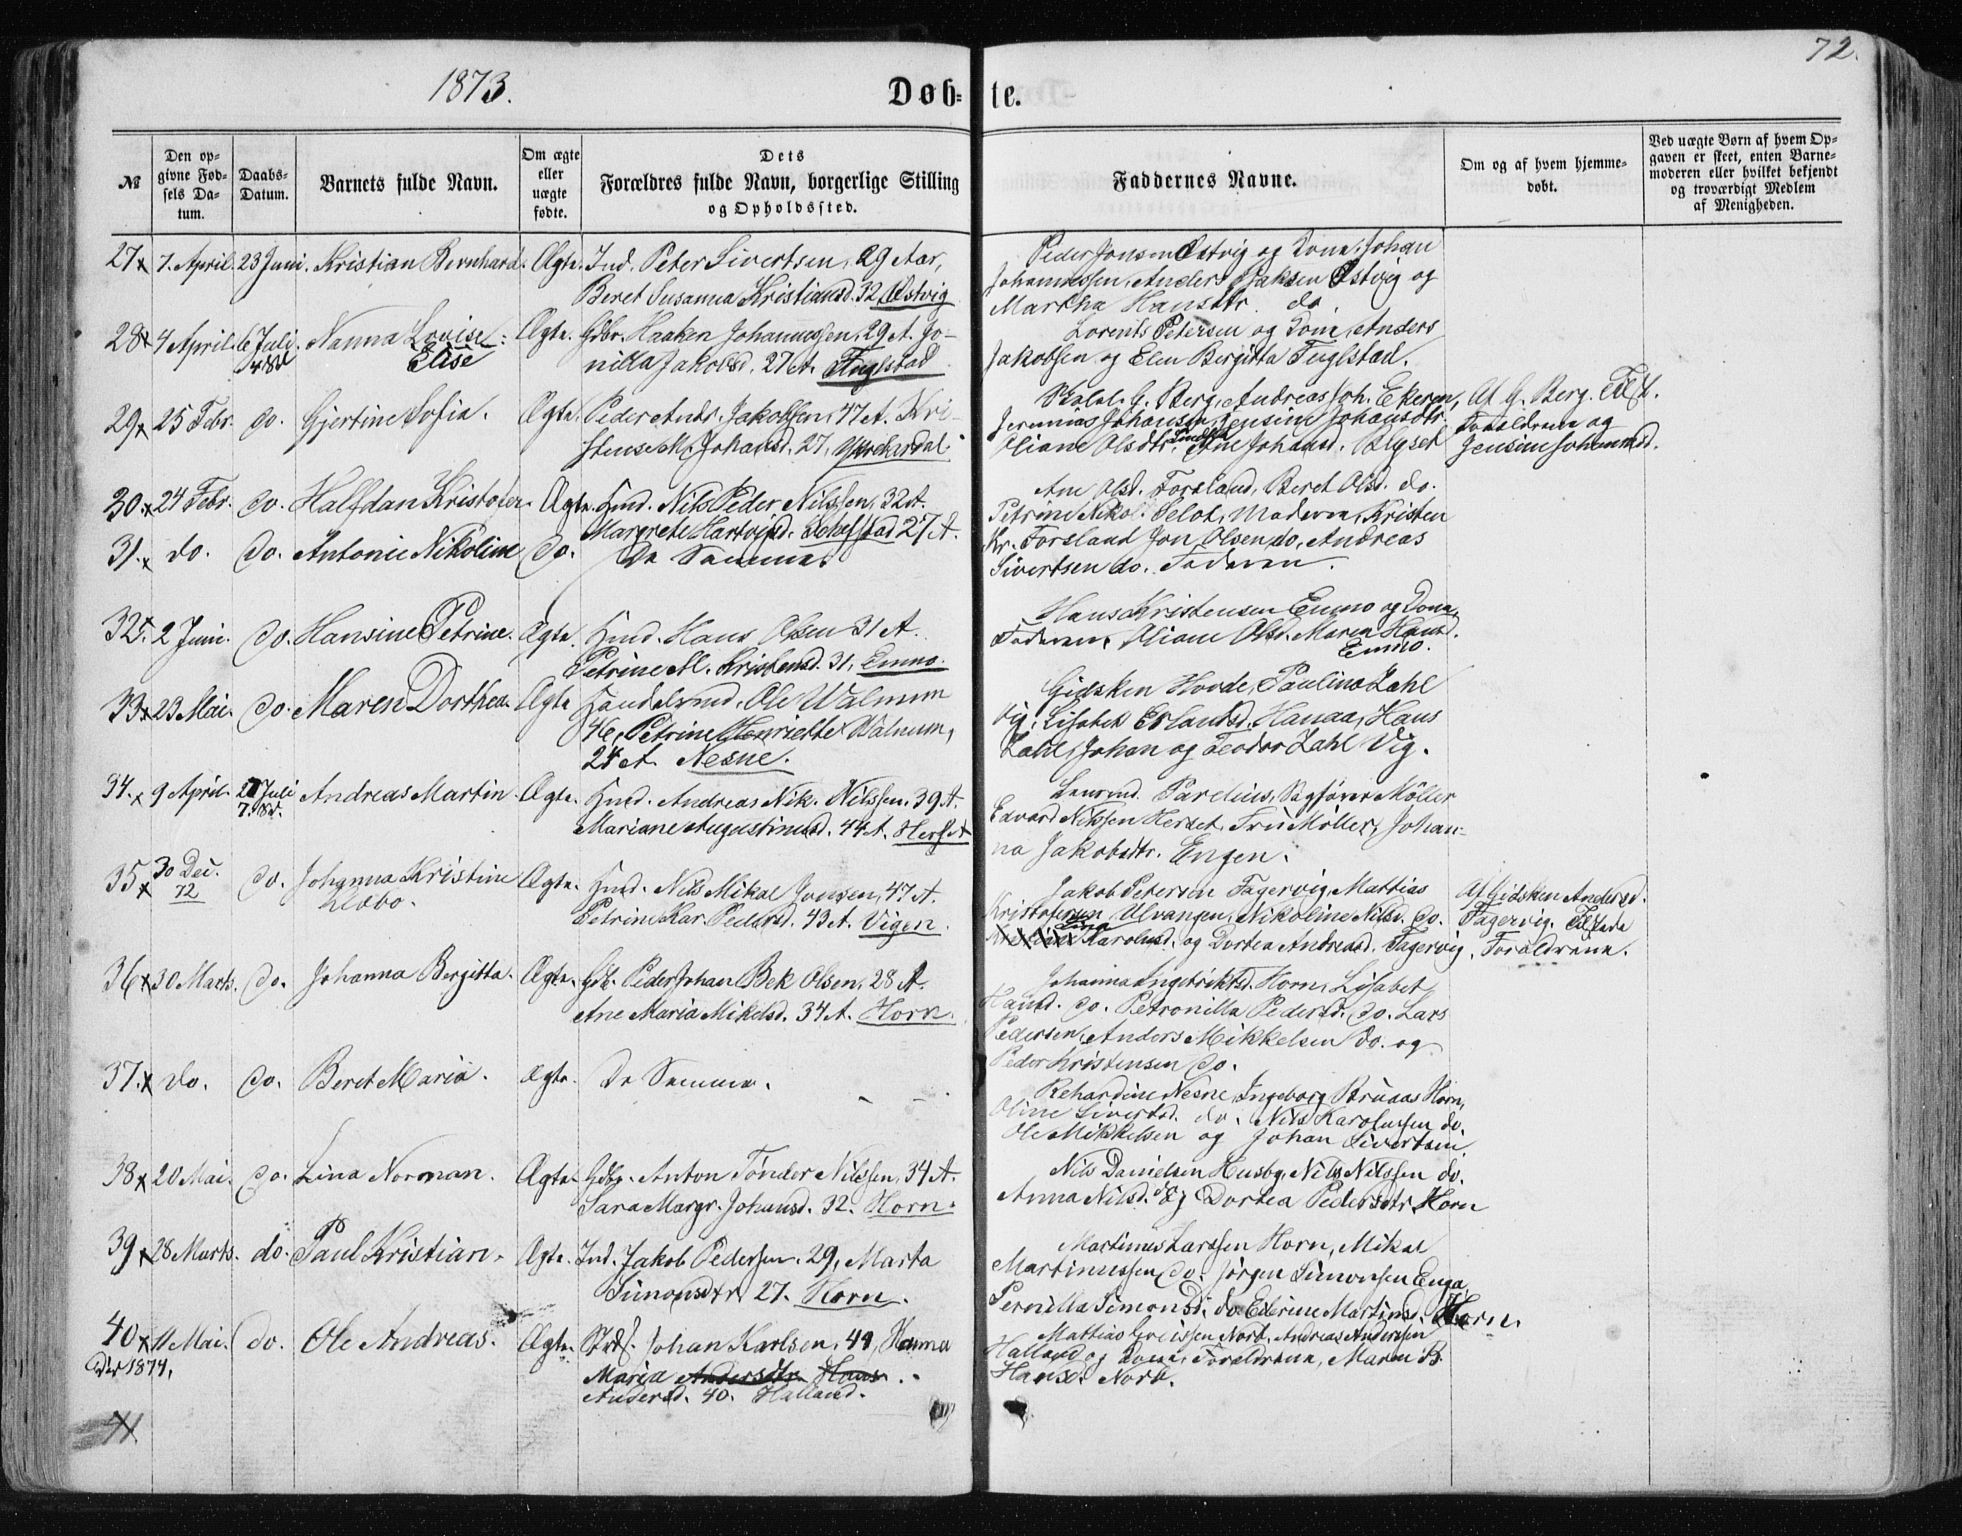 72.
1873.
Døb=
te.
№
Den op=
givne Fød=
sels Da=
tum.
Daabs=
Datum.
Barnets fulde Navn.
Om ægte
eller
uægte
fødte.
Dets
Forældres fulde Navn, borgerlige Stilling
og Opholdssted.
Faddernes Navne.
Om og af hvem hjemme=
døbt.
Ved uægte Børn af hvem Op=
gaven er skeet, enten Barne=
moderen eller hvilket bekjendt
og troværdigt Medlem
af Menigheden.
27 x 7. April. 23 Juni. Kristian Bernhard. Ægte. Ind. Peter Sivertsen, 29 Aar,
Beret Susanna Kristiansd. 32 Østvig
Peder Jonsen Østvig og Kone, Johan
Johannessen, Anders Isaksen Østvig og
Martha Hansdtr. do.
28 x 4 April. 6 Juli. Nanna Lovise Ægte. Gdbr. Haaken Johannessen, 29 A. Jo-
Elise
nilla Jakobsd. 27 A. Fuglstad
Lorents Petersen og Kone, Anders
Jakobsen og Elen Bergitta Fuglstad.
29 x 25 Febr. do. Gjertine Sofia. Ægte. Peder Andr. Jakobsen, 47 A. Kri-
Johansd. 27,
G. Berg, Andreas Joh. Ekeren,
Jeremias Johansen, Jensine Johansdtr.
Oliane Olsdtr. Ane Johansd.
Af G. Berg. Tilst.
Forældrene og
Jensine Johannesd.
30 x 24 Febr. do. Halfdan Kristofer. Ægte. Hmd. Nils Peder Nilssen, 32 A.
Margrete Hartvigsd. 27 A.
31. x do. do. Antonie Nikoline do. De Samme.
Ane Olsd. Forsland, Beret Olsd. do.
Petrine Nikol. Selot, Moderen, Kristen
Kr. Forsland Jon Olsen do, Andreas
Sivertsen do. Faderen.
32. 2 Juni. do. Hansine Petrine. Ægte. Hmd. Hans Olsen 31 A.
Petrine M. Kristensd. 31, Enmo.
Hans Kristensen Enmo og Kone,
Faderen, Oliane Olsd. Maren Hansd.
Enmo.
33 x 23 Mai. do. Maren Dorthea. Ægte Handelsmd. Ole Walnum
46, Petrine Henriette Walnum,
24 A. Nesne.
Gidsken Hovde, Paulina Zahl
Vig, Lisabet Erlandsd. Hanaa, Hans
Zahl, Johan og Teodor Zahl Vig.
34. x 9 April. Juli Andreas Martin. Ægte. Hmd. Andreas Nik. Nilssen. 39 A.
Mariane Augustinusd. 44 A. Herset
Lensmd. Parelius, Sagfører Möller
Edvard Nilssen Herset, Fru Möller, Johan-
na Jakobsdtr. Engen.
35 x 30 Dec. 72 do. Johanna Kristine Ægte. Hmd. Nils Mikal Jonsen, 47 A.
Debo.
Petrine Kar. Pedersd. 43 A. Vigen.
Jakob Petersen Fagervig, Mattias
Kristofersen Ulvangen, Nikoline Nilsd. do.
Lina Karolusd. og Dortea Andreasd. Fagervig.
Af Gidsken Andersd.
Fagervig. Tilstede
Forældrene.
36 x 30 Marts. do. Johanna Bergitta. Ægte. Gdb. Peder Johan Bek Olsen, 28 A.
Ane Maria Mikelsd. 34 A. Horn.
Johanna Ingebriktsd. Horn, Lisabet
Hansd. do. Petronilla Pedersd. do. Lars
Pedersen, Anders Mikkelsen do. og
Peder Kristensen do.
37. x do. do. Beret Maria. Ægte. De Samme.
Rehardine Nesne, Ingeborg Bruaas Horn,
Oline Sivertsd. do. Nils Karolussen do.
Ole Mikkelsen og Johan Sivertsen.
38 x 20 Mai. do. Lina Norman. Ægte. Gdbr. Anton Tønder Nilssen, 34 A.
Sara Margr. Johansd. 32. Horn.
Nils Danielsen Husby, Nils Nilssen do.
Anna Nilsd. og Dortea Pedersdtr. Horn
39 x 28 Marts. do. Paul Kristian. Ægte. Ind. Jakob Pedersen. 29, Marta
Simonsdtr. 27. Horn.
Martinus Larssen Horn, Mikal
Martinussen do. Jørgen Simonsen Enga,
Pernilla Simonsd. do. Martinsd. Horn.
40 x 11 Mai. do. Ole Andreas. Ægte. Johan Karlsen, 41, Hanna
Død 1874,
Maria Andersdtr. Hans
Andersd. 40. Halland.
Mattias Nord, Andreas Andersen
Halland og Kone, Forældrene, Maren B.
Hansd. Nord.
41